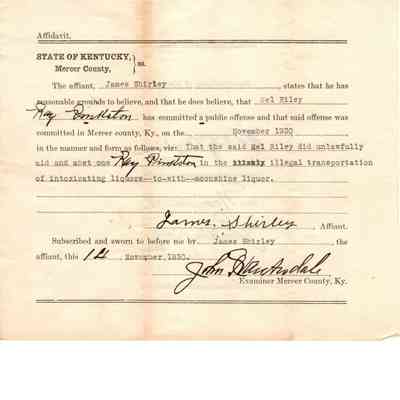 Affidavit.
STATE OF KENTUCKY, } ss.
Mercer County,
The affiant, James Shirley states that he has
reasonable grounds to believe, and that he does believe, that Mel Riley
Ray Pinkston has committed a public offense and that said offense was
committed in Mercer county, Ky., on the November 1930
in the manner and form as follows, viz: That the said Mel Riley did unlawfully
aid and abet one Ray Pinkston in the illegal transportation
of intoxicating liquors--to-with--moonshine liquor.
James Shirley Affiant.
Subscribed and sworn to before me by James Shirley the
affiant, this 14 November, 1930.
Examiner Mercer County, Ky.